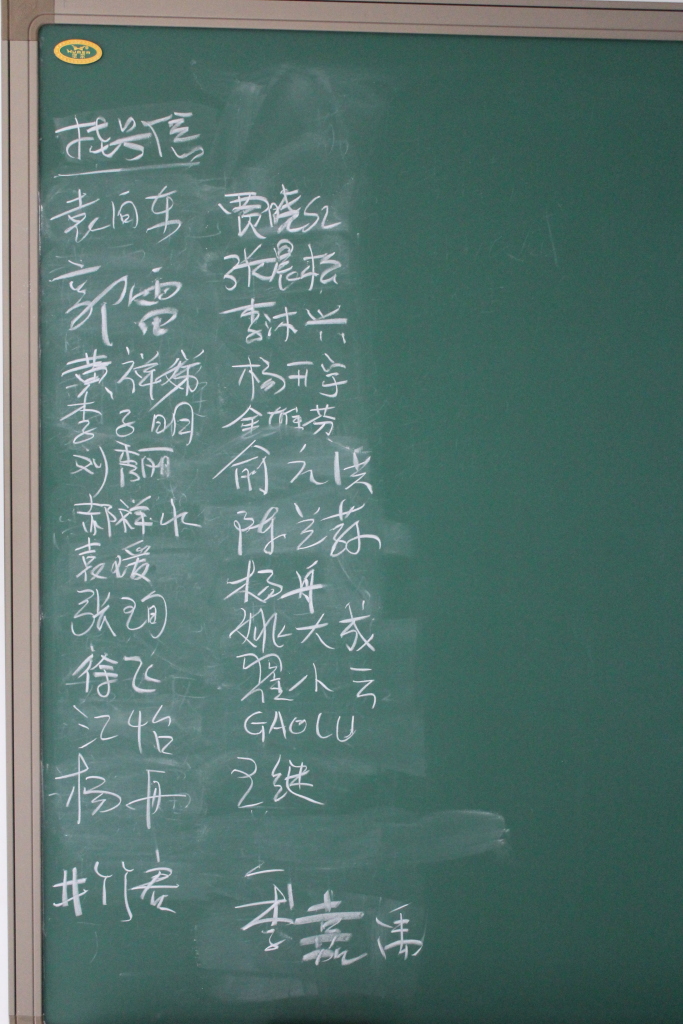 袁向东
郭雷
黄祥娣
李子明
刘秀丽
郝祥水
袁媛
张珣
徐飞
江怡
杨舟
井竹君
贾晓红
张晨松
李沐兴
杨开宇
金雅芬
俞元洪
陈兰荪
杨舟
姚大成
翟小云
GAOLU
王继
李嘉禹